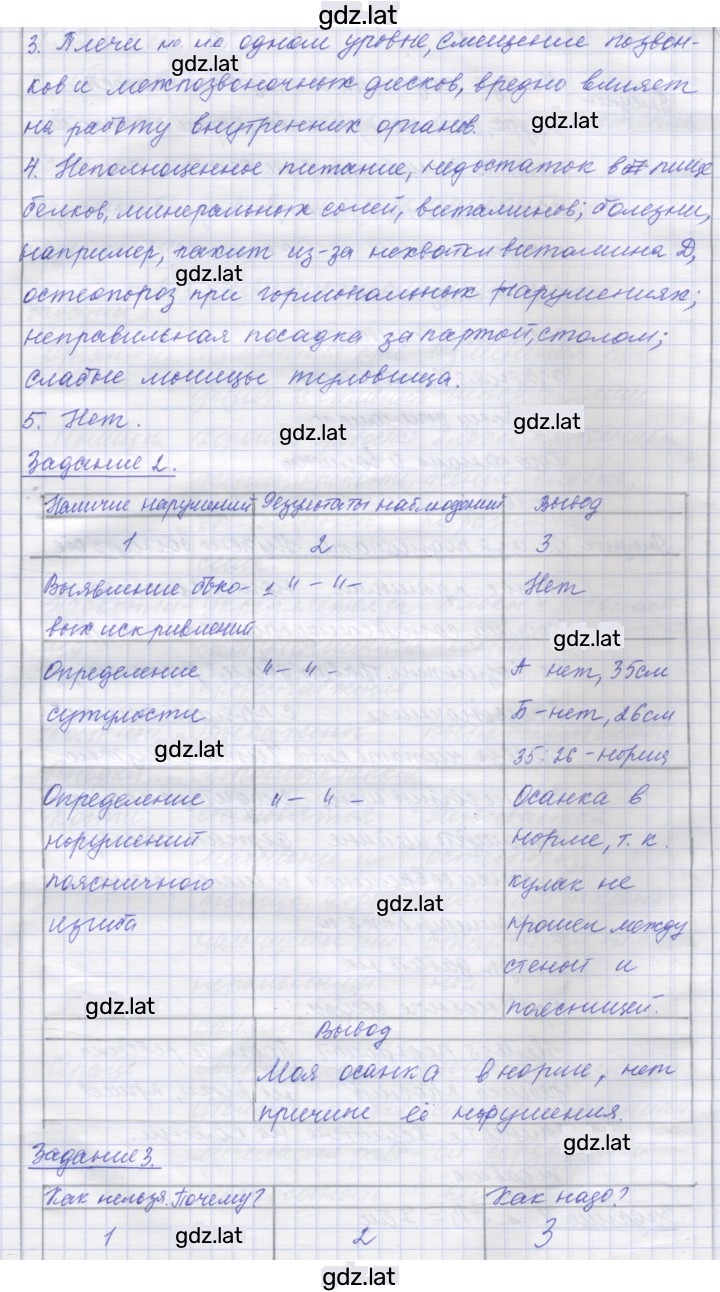 gdz.lat
3. Плечи не на одном уровне, смещение позвон-
gdz.lat
ков и межпозвоночных дисков, вредно влияет
на работу внутренних органов.
gdz.lat
4. Неполноценное питание, недостаток в пище
белков, минеральных солей, витаминов; болезни,
например, рахит из-за нехватки витамина Д,
gdz.lat
остеопороз при гормональных нарушениях;
неправильная посадка за партой, столом;
слабые мышцы туловища.
5. Нет.
gdz.lat
gdz.lat
Задание 2.
Наличие нарушений Результаты наблюдений Вывод
1 2 3
Выявление боко- 1 "–"– Нет
вых искривлений
gdz.lat
Определение "– "– А нет, 35см
сутулости Б-нет, 26см
gdz.lat
35:26-норма
Определение "– "– Осанка в
нарушений норме, т.к.
поясничного кулак не
gdz.lat
изгиба прошел между
стеной и
gdz.lat
поясницей.
Вывод
Моя осанка в норме, нет
причин её нарушения.
gdz.lat
Задание 3.
Как нельзя. Почему? Как надо?
1 2 3
gdz.lat
gdz.lat